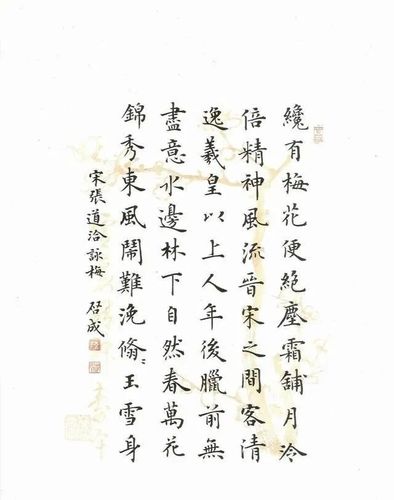 纔有梅花便絕塵霜舖月冷
倍精神風流晉宋之間客清
逸羲皇以上人年後臘前無
盡意水邊林下自然春萬花
錦秀東風鬧難浼翛〻玉雪身
宋張道洽詠梅 启成